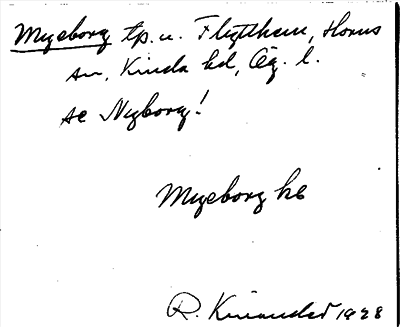 Myeborg tp. u. Flytthem, Horns
sn, Kinda hd, Ög. l.
se Nyborg!
Myeborg hb
R. Kinander 1928